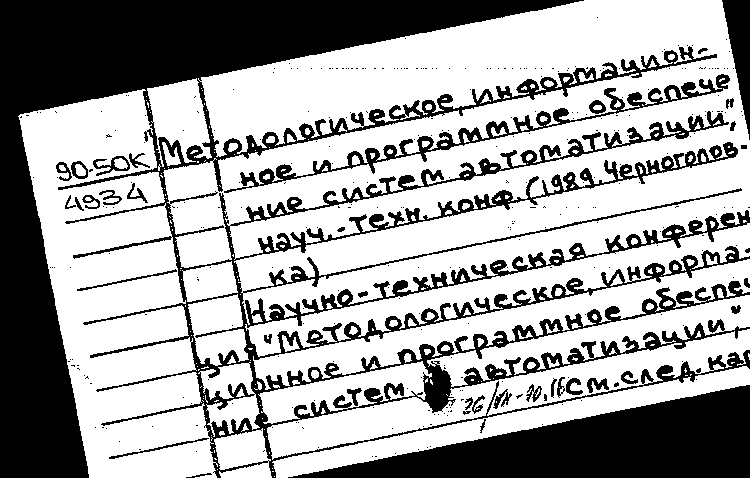 "Методологическое, информацион-
90-50К
ное и программное обеспече
4934
ние систем автоматизации",
науч.-техн. конф. (1989, Черноголов-
ка).
Научно-техническая конферен
ция "Методологическое, информа-
ционное и программное обеспеч
ние систем автоматизации",
см. след. кар